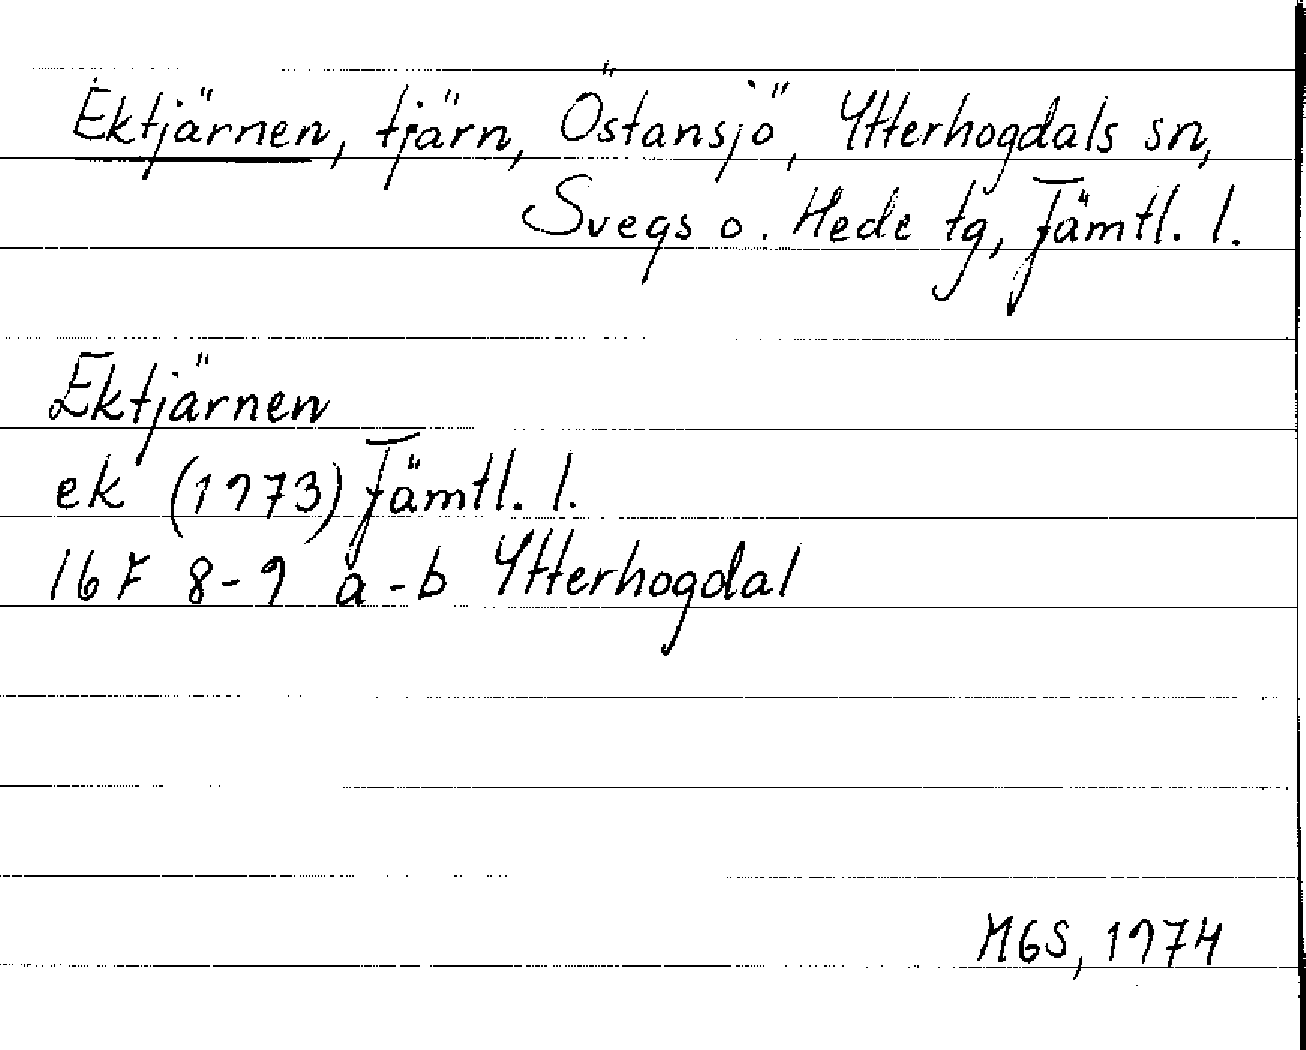 Ektjärnen, tjärn, Östansjö, Ytterhogdals sn,
Svegs o. Hede tg, Jämtl. l.
Ektjärnen
ek (1973) Jämtl. l.
16F 8-9 a-b Ytterhogdal
MGS, 1974